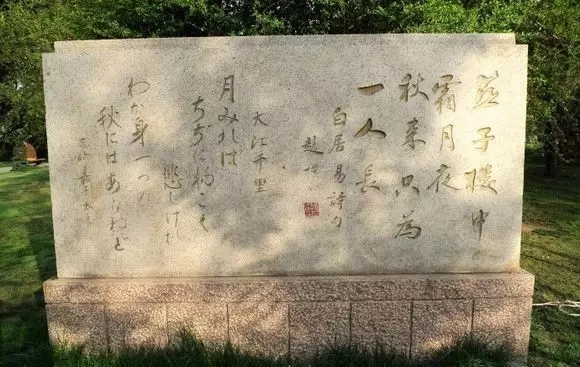 燕子樓中
霜月夜
秋来只為
一人長
白居易詩句
大江千里
月みれば
ちゞに物こそ
悲しけれ
わが身一つの
秋にはあらねど